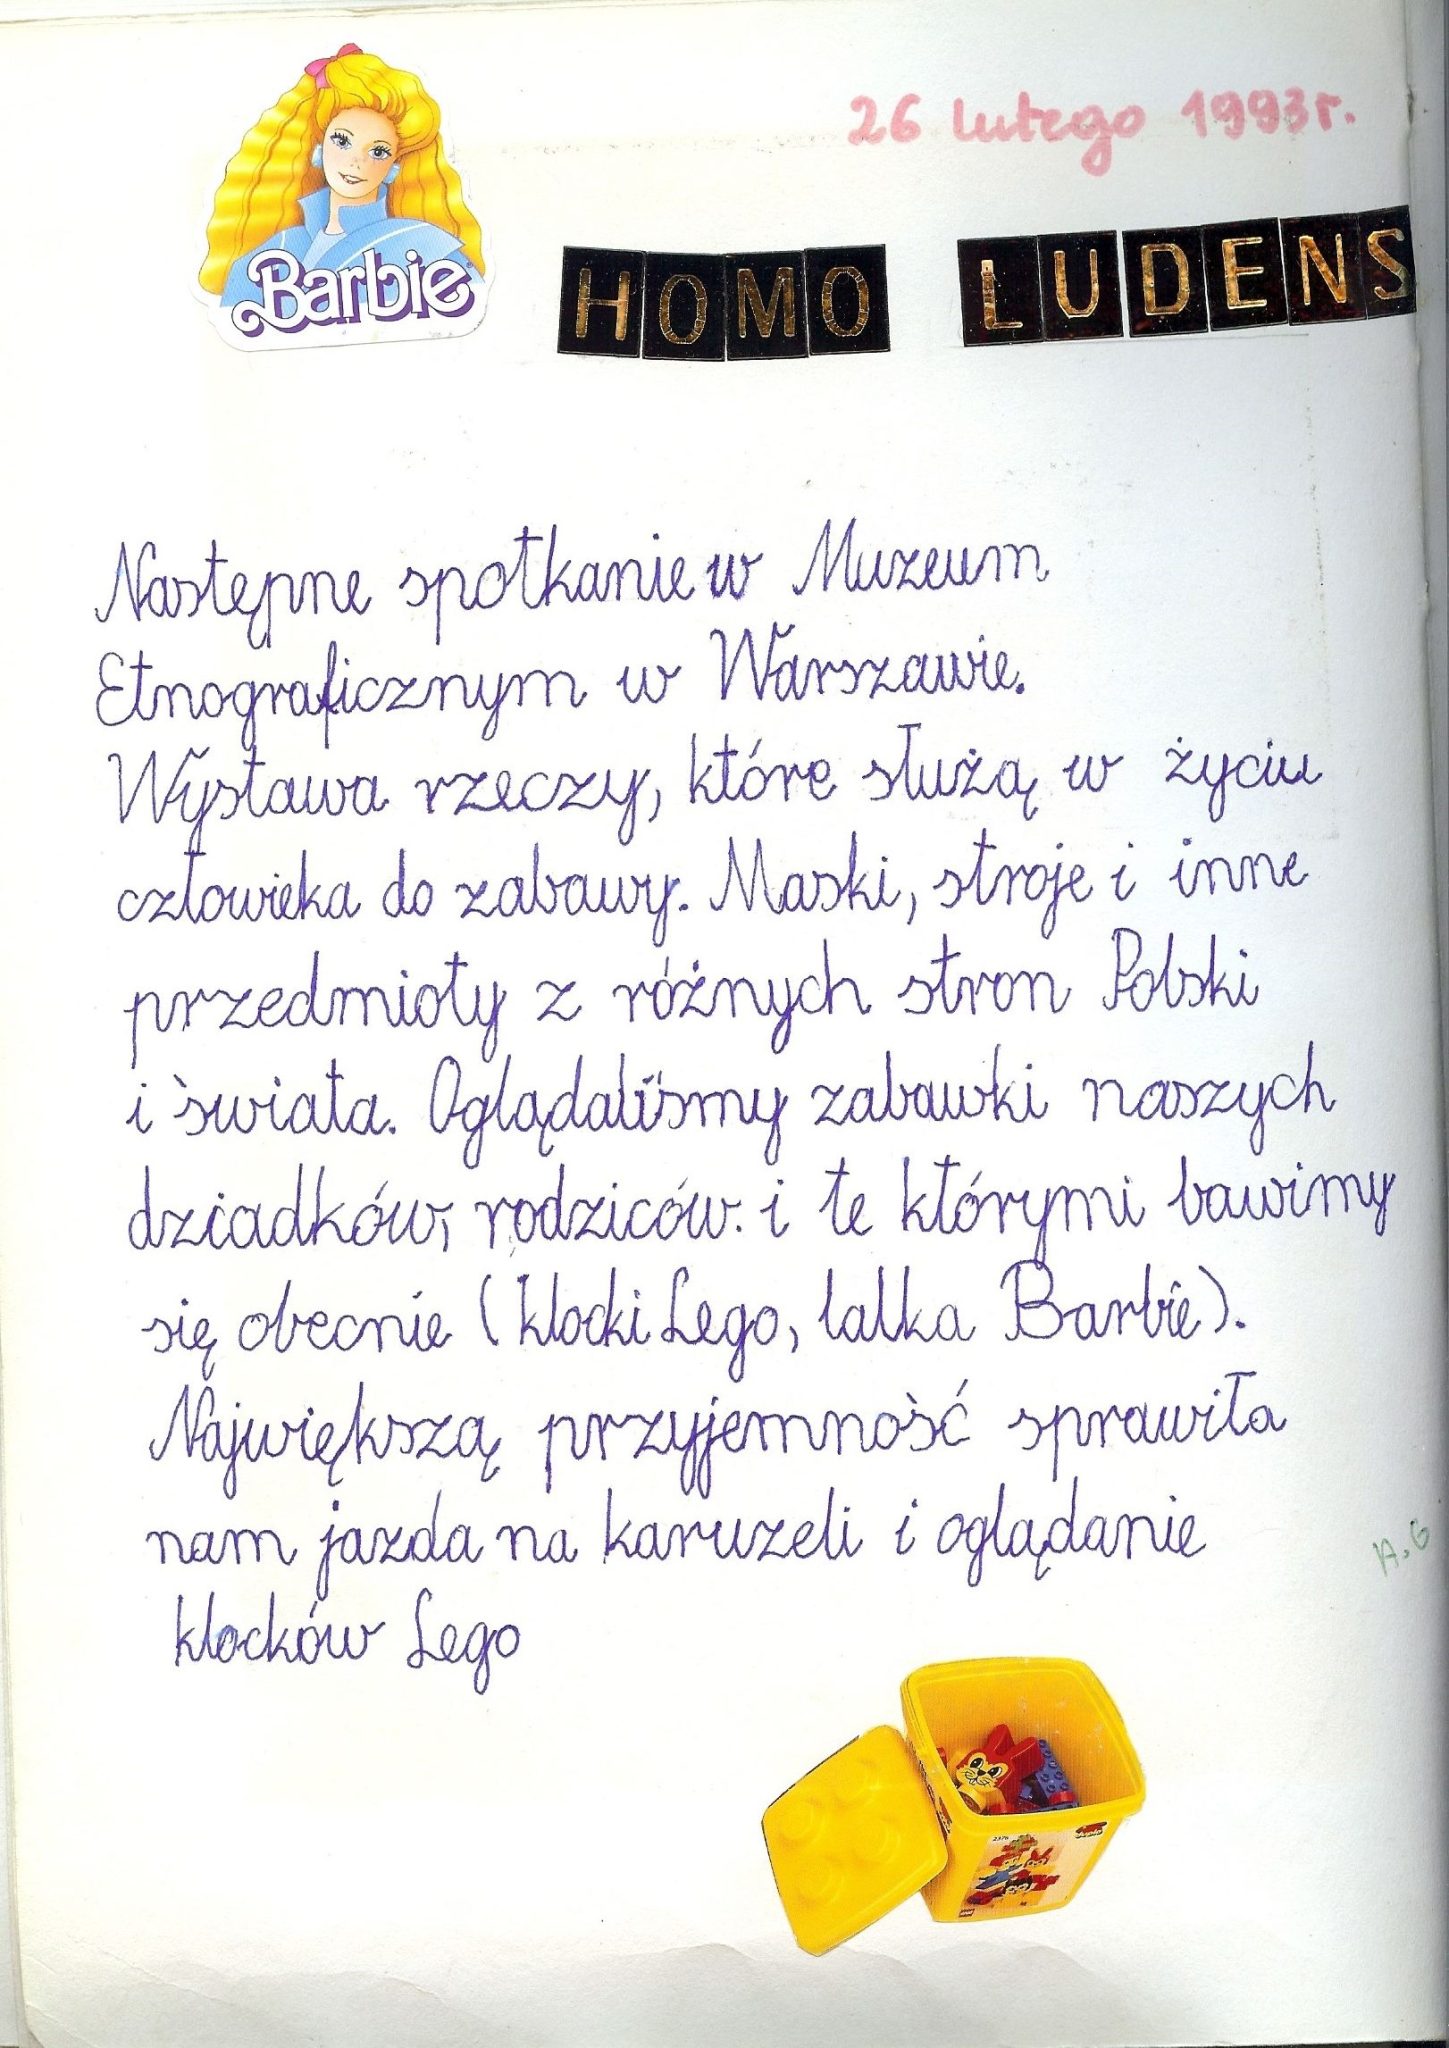 26 lutego 1993r.
Barbie
HOMO LUDENS
Następne spotkanie w Muzeum
Etnograficznym w Warszawie.
Wystawa rzeczy, które służą w życiu
człowieka do zabawy. Maski, stroje i inne
przedmioty z różnych stron Polski
i świata. Oglądaliśmy zabawki naszych
dziadków, rodziców. i te którymi bawimy
się obecnie (klocki Lego, lalka Barbie).
Największą przyjemność sprawiła
nam jazda na karuzeli i oglądanie
klocków Lego
A.G
2376